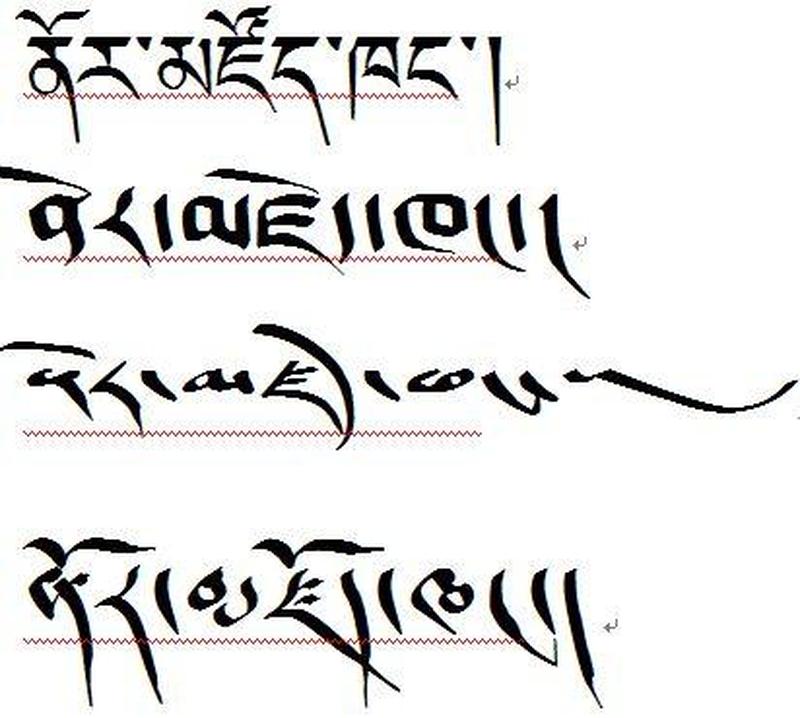 ནོར་མཛོད་ཁང་།
ནོར་མཛོད་ཁང་།
ནོར་མཛོད་ཁང་།
ནོར་མཛོད་ཁང་།